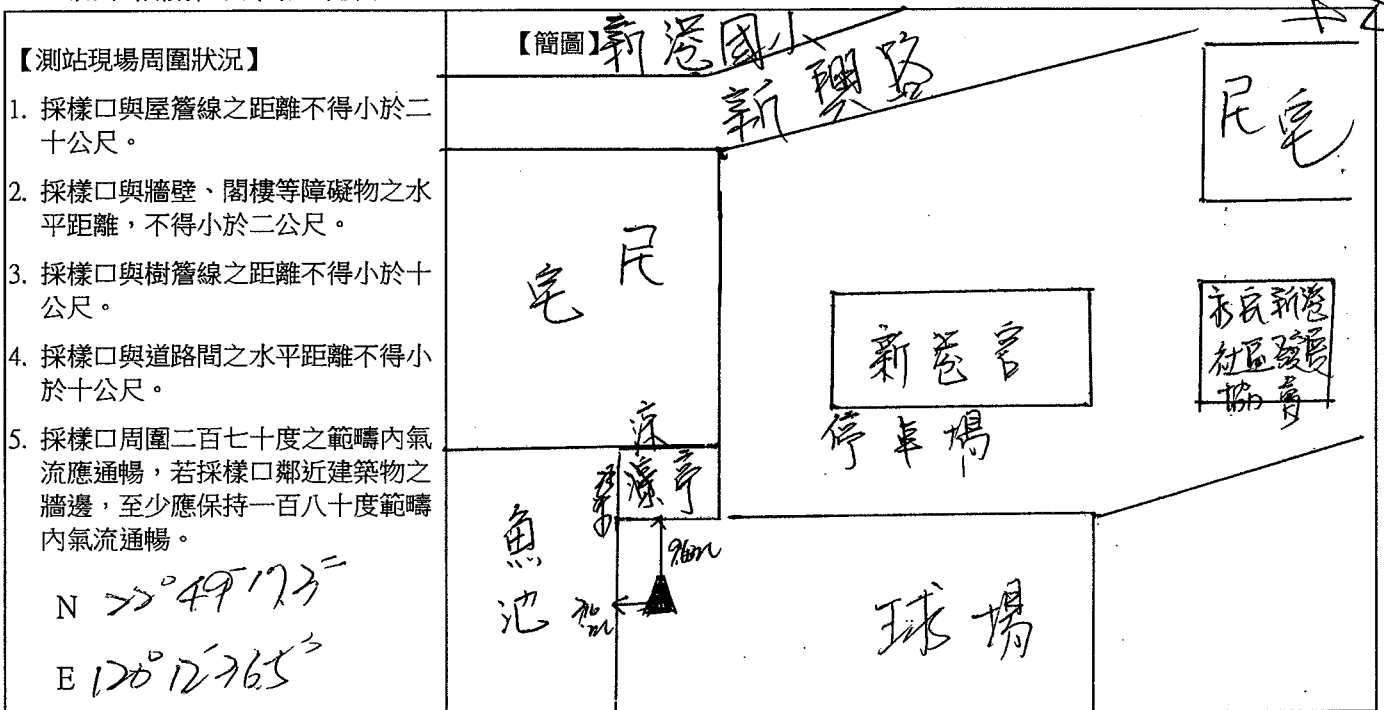 【測站現場周圍狀況】
1. 採樣口與屋簷線之距離不得小於二
十公尺。
2. 採樣口與牆壁、閣樓等障礙物之水
平距離，不得小於二公尺。
3. 採樣口與樹簷線之距離不得小於十
公尺。
4. 採樣口與道路間之水平距離不得小
於十公尺。
5. 採樣口周圍二百七十度之範疇內氣
流應通暢，若採樣口鄰近建築物之
牆邊，至少應保持一百八十度範疇
內氣流通暢。
N 22°49'17.3"
E 120°12'36.5"
【簡圖】
新港國小
新興路
民宅
民宅
新港宮
停車場
永安新港
社區發展
協會
涼
涼亭
魚池
球場